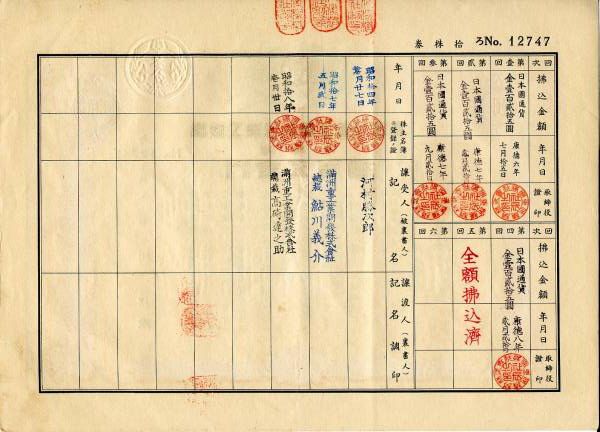 ろNo. 12747
拾株券
回次
拂込金額
年月日
取締役證印
第壹回
日本國通貨
金壹百貳拾五圓
康德六年
七月拾五日
第貳回
日本國通貨
金壹百貳拾五圓
康德七年
第參回
日本國通貨
金壹百貳拾五圓
康德七年
九月貳日
回次
拂込金額
年月日
取締役證印
第四回
日本國通貨
金壹百貳拾五圓
康德八年
第五回
第六回
全額拂込濟
年月日
株主名簿
登錄ノ證
讓受人(被裏書人)
記名
讓渡人(裏書人)
記名調印
昭和拾四年
河村勝次郎
昭和拾七年
五月貳日
滿洲重工業開發株式會社
總裁 鮎川義介
昭和拾八年
滿洲重工業開發株式會社
總裁 高碕達之助